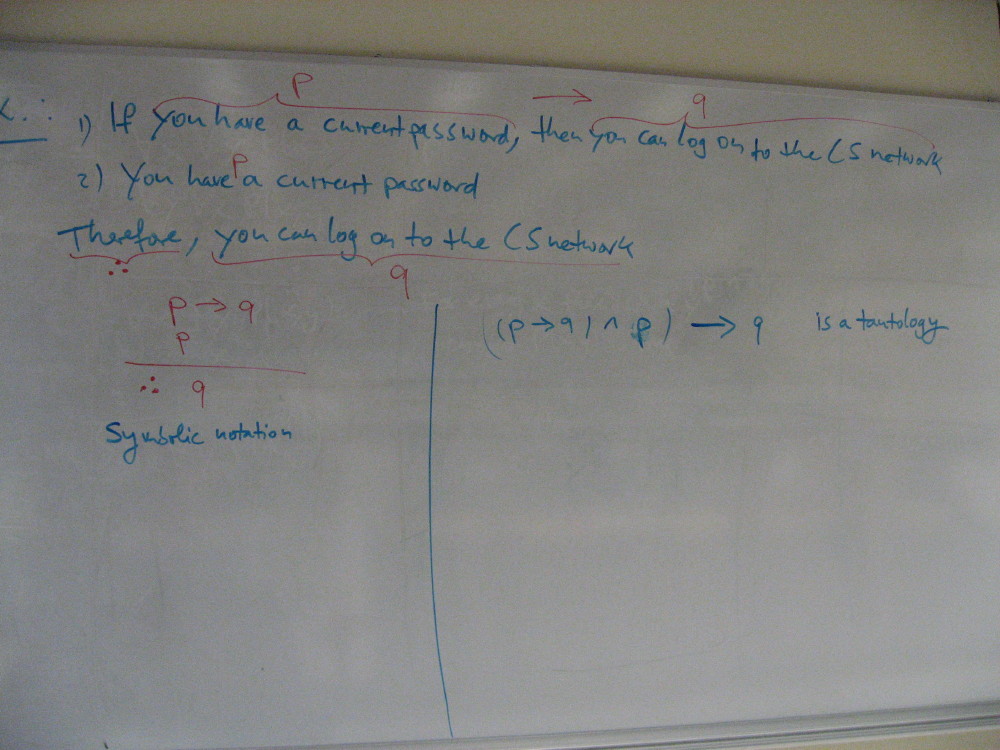 p → q
1) If you have a current password, then you can log on to the CS network
p
2) You have a current password
Therefore, you can log on to the CS network
∴ q
p → q
p
∴ q
Symbolic notation
((p → q) ∧ p) → q is a tautology